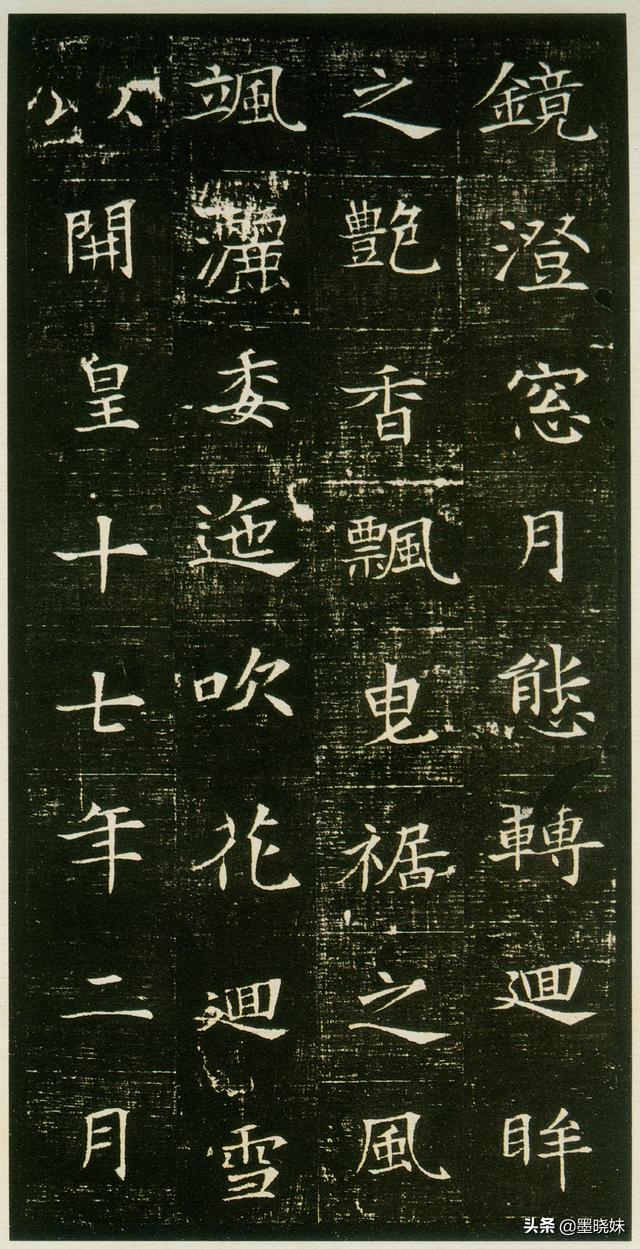 鏡澄窓月態轉迴眸
之艷香飄曳裾之風
颯灑委迤吹花迴雪
以開皇十七年二月
头条 @墨晓妹